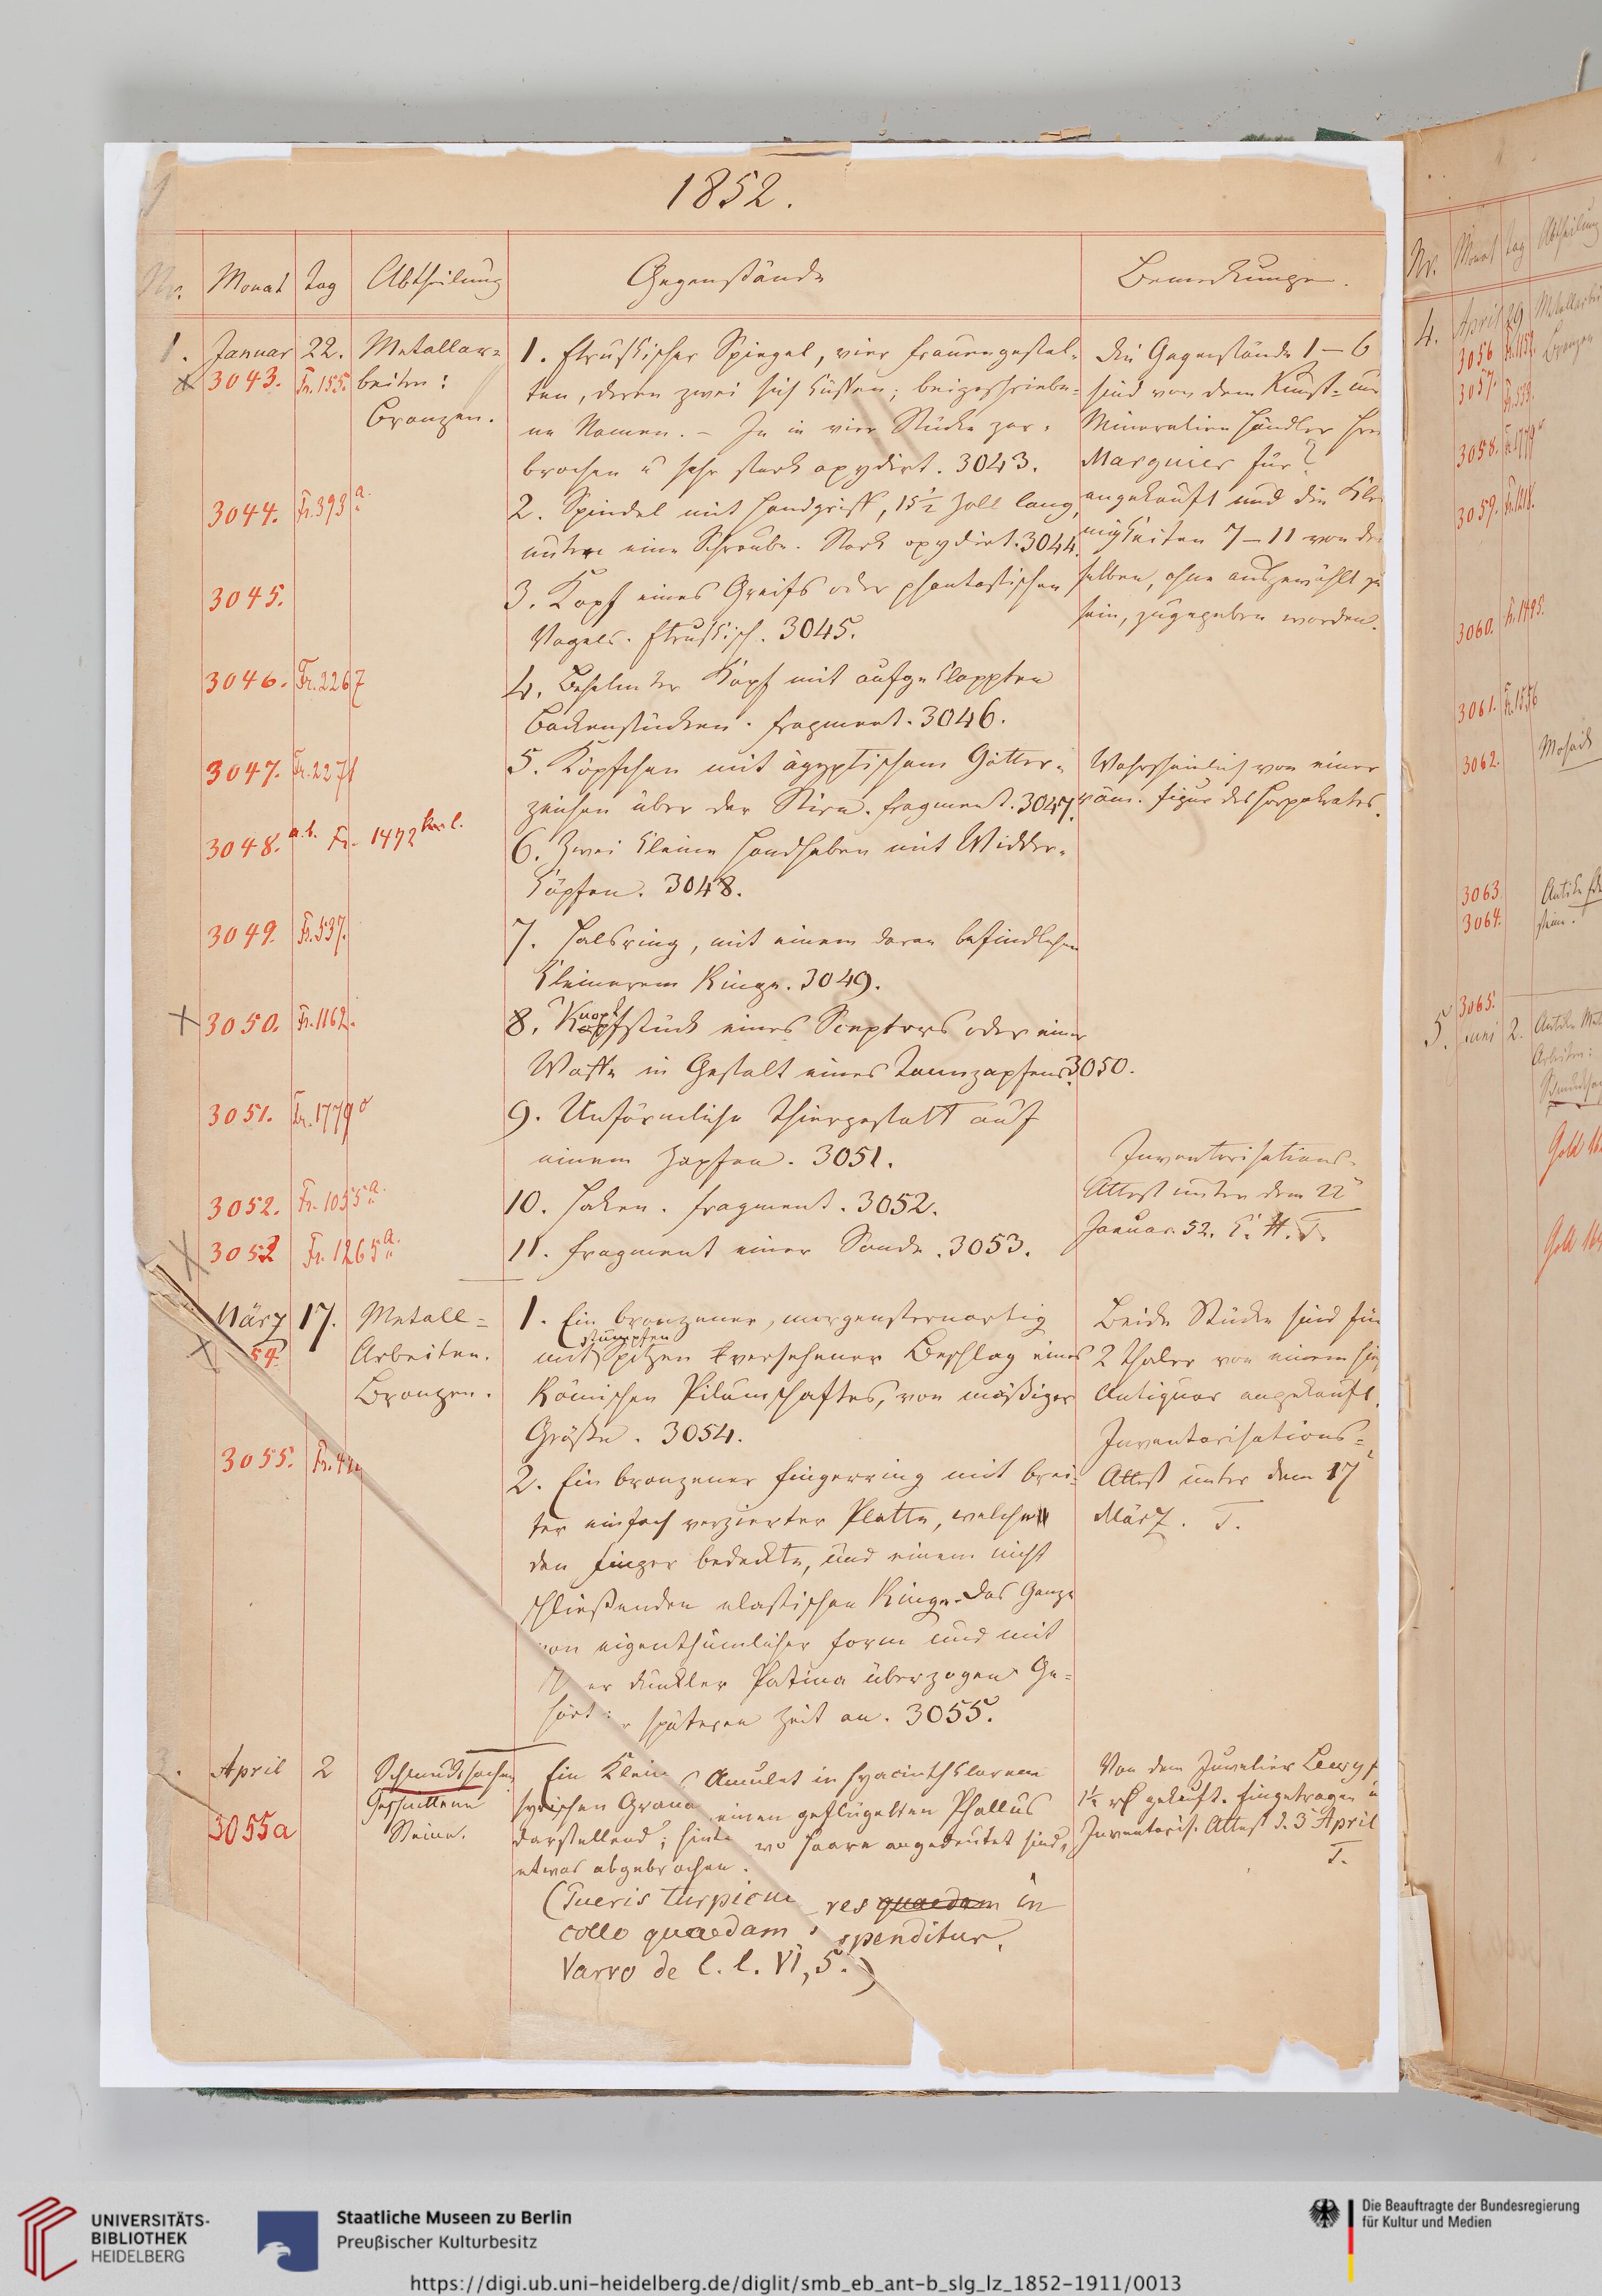 1852.
Nr. Monat Tag Abtheilung Gegenstände Bemerkungen.
1. Januar 22. Metallar-
beiten:
Bronzen.
3043. Fr. 155.
1. Etruskischer Spiegel, vier Frauengestal-
ten, deren zwei sich küssen; beigeschriebe-
ne Namen. – In in vier Stücke zer-
brochen u sehr stark oxydirt. 3043.
3044. Fr. 393 a.
2. Spindel mit Handgriff, 15½ Zoll lang,
unten eine Schraube. Stark oxydirt. 3044.
3045.
3. Kopf eines Greifs oder phantastischen
Vogels. Etruskisch. 3045.
3046. Fr. 2267
4. Behelmter Kopf mit aufgeklappten
Backenstücken. Fragment. 3046.
Die Gegenstände 1–6
sind von dem Kunst- und
Mineralien Händler Hrn
Marguier für ?
angekauft und die Klei
nigkeiten 7–11 von dem
selben, ohne ausgewählt zu
sein, zugegeben worden.
3047. Fr. 2271
5. Köpfchen mit ägyptischem Götter-
zeichen über der Stirn. Fragment. 3047.
Wahrscheinlich von einer
röm. Figur des Harpokrates.
3048. a.b. Fr. 1472 l.
6. Zwei kleine Handhaben mit Widder-
köpfen. 3048.
3049. Fr. 537.
7. Halsring, mit einem daran befindlichen
kleinerem Ringe. 3049.
3050. Fr. 1162.
8. Knopfstück eines Scepters oder einer
Waffe in Gestalt eines Tannzapfens. 3050.
3051. Fr. 1779 o
9. Unförmliche Thiergestalt auf
einem Zapfen. 3051.
3052. Fr. 1055 a.
10. Haken. Fragment. 3052.
3053 Fr. 1265 a.
11. Fragment einer Sonde. 3053.
Inventarisations-
Attest unter dem 22
Januar. 52. T. H. T.
März 17. Metall-
Arbeiten.
Bronzen.
54.
1. Ein bronzener, morgensternartig
mit stumpfen Spitzen versehener Beschlag eines
Römischen Pilumschaftes, von mäßiger
Größe. 3054.
3055. Fr. 44
2. Ein bronzener Fingerring mit brei-
ter einfach verzierter Platte, welche
den Finger bedeckte, und einem nicht
schließenden elastischen Ringe. Das Ganze
von eigenthümlicher Form und mit
er dunkler Patina überzogen. Ge-
hört späteren Zeit an. 3055.
Beide Stücke sind für
2 Thaler von einem
Antiquar angekauft.
Inventarisations-
Attest unter dem 17
März. T.
3. April 2 Schmucksachen
Geschnittene
Steine.
3055a
Ein Klein Amulet in hyacinthklarem
syrischen Grana einen geflügelten Phallus
darstellend; hinte wo Haare angedeutet sind,
etwas abgebrochen.
(Pueris turpicu res quaedam in
collo quaedam spenditur.
Varro de l. l. VI, 5.)
Von dem Juwelier Lewy f
1½ rℓ gekauft. Eingetragen u
Inventaris. Attest d. 3 April
T.
Nr. Monat Tag Abtheilung
4. April 29 Metallarbei
Bronzen
3056 Fr. 1152.
3057.
3058. Fr. 1779
3059. Fr. 1218.
3060. Fr. 1495.
3061. Fr. 1556
3062. Mosaik
3063.
3064.
3065.
5. Juni 2. Antike
Arbeiten:
Schmucksa
Gold
Gold
UNIVERSITÄTS-
BIBLIOTHEK
HEIDELBERG
Staatliche Museen zu Berlin
Preußischer Kulturbesitz
Die Beauftragte der Bundesregierung
für Kultur und Medien
https://digi.ub.uni-heidelberg.de/diglit/smb_eb_ant-b_slg_lz_1852-1911/0013